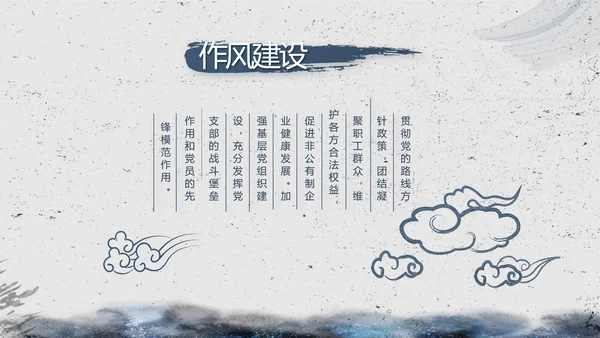 作风建设
贯彻党的路线方
针政策，团结凝
聚职工群众，维
护各方合法权益，
促进非公有制企
业健康发展。加
强基层党组织建
设，充分发挥党
支部的战斗堡垒
作用和党员的先
锋模范作用。